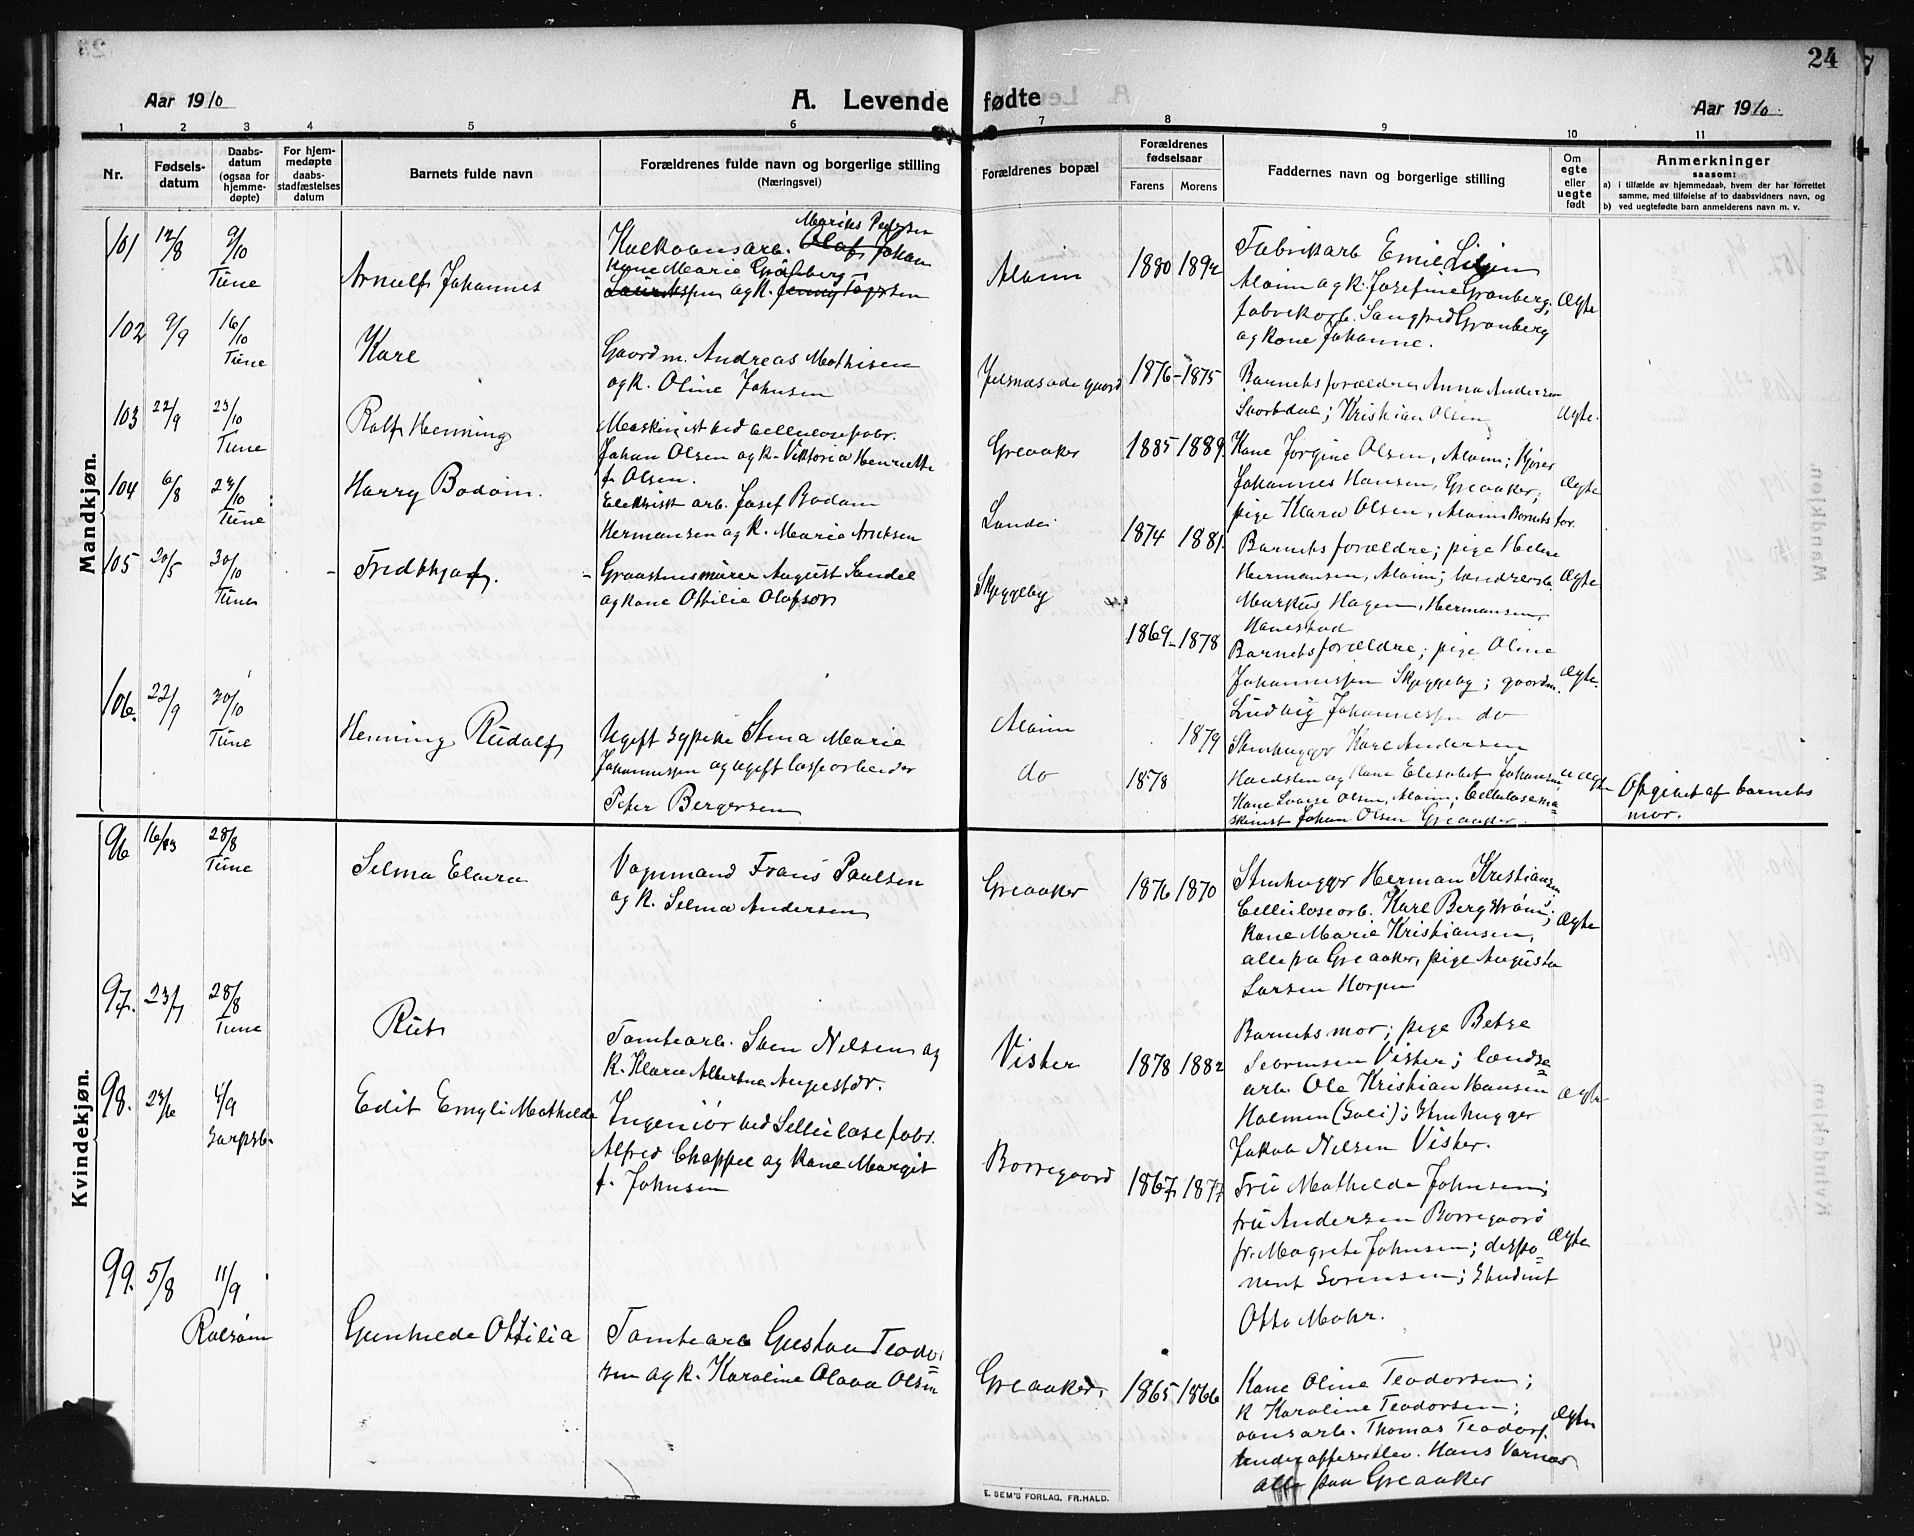 24
Aar 1910
A. Levende fødte
Aar 1910.
1 2 3 4 5 6 7 8 9 10 11
Nr.
Fødsels-
datum
Daabs-
datum
(ogsaa for
hjemme-
døpte)
For hjem-
medøpte
daabs-
stadfæstelses
datum
Barnets fulde navn
Forældrenes fulde navn og borgerlige stilling
(Næringsvei)
Forældrenes bopæl
Forældrenes
fødselsaar
Farens Morens
Faddernes navn og borgerlige stilling
Om
egte
eller
uegte
født
Anmerkninger
saasom:
a) i tilfælde av hjemmedaab, hvem der har forrettet
samme, med tilføielse af to daabsvidners navn, og
b) ved uegtefødte barn anmelderens navn m. v.
Mandkjøn.
101 12/8 9/10
Tune
Arnulf Johannes
Marius Pedersen
Kalkovnsarb. Olaf Johan
kone Marie Grønberg
ogk. Jenny
Alvim
1880 1892
Fabrikarb Emil
Alvim og k. Josefine Granberg,
fabrikarb. Sangfred Granberg
og kone Johanne.
Ægte
102 9/9 16/10
Tune
Kare
Gaardm. Andreas Mathisen
ogk. Oline Johnsen
1876-1875
Barnets forældre, Anna Andersen
Kristian Olsen
Ægte.
103 22/9 23/10
Tune
Rolf Henning
Maskinist ved Cellulosefabr.
Johan Olsen og k. Viktoria Henriette
f. Olsen.
Greaaker
1885 1889.
Kone Jørgine Olsen, Alvim; kjører
Johannes Hansen, Greaaker;
pige Klara Olsen, Alvim Barnets for.
Ægte
104 6/8 23/10
Tune
Harry Bodom.
Elektrisk arb. Josef Bodom
Hermansen og k. Maria
Lande
1874 1881.
Barnets forældre; pige Helene
Hermansen, Alvim;
Markus Hagen, Hermansen,
Hanestad
Ægte
105 20/5 30/10
Tune
Fredthjof.
Graastensmurer August Sandel
og kone Ottilie Olafsen
Skjeggeby
1869-1878
Barnets forældre; pige Oline
Johannessen Skjeggeby; gaardm.
Ludvig Johannessen do
Ægte.
106. 22/9 30/10
Tune
Henning Rudolf
Ugift sypike Stina Marie
Johannessen og ugift lossearbeider
Peter Bergersen
Alvim
do
1879
1878
Stenhugger Karl Andersen
og kone Elisabet Johansen,
Kone Lovise Olsen, Alvim, Cellulosema-
skinist Johan Olsen Greaaker.
uægte
Opgivet af barnets
mor.
Kvindekjøn.
96 16/83 28/8
Tune
Selma Elvira
Vognmand Frans Paulsen
og k. Selma Andersen
Greaaker
1876 1870
Stenhugger Herman Kristiansen
Celluloseorb. Karl Bergstrøm;
kone Marie Kristiansen,
alle pa Greaaker, pige Augusta
Larsen Horgen
Ægte
97. 23/7 28/8
Tune
Rut
Tomtearb. Sven Nilsen og
k. Klara Albertine Augustdr.
Vister
1878 1882
Barnets mor; pige Betze
Sørensen Vister; landse
arb. Ole Kristian Hansen
Holmen (Soli); Stenhugger
Jakob Nilsen Vister.
Ægte
98. 23/6 4/9
Sarpsb.
Edit Emyli Mathilde
Ingeniør ved Sellulosefabr.
Alfred Chappel og kone Margit
f. Johnsen
Borregaard
1867 1877
Fru Mathilde Johnsen;
fru Andersen Borregaard
fr. Magrete Johnsen; dispo-
nent Sorensen; Student
Otto Mohr.
Ægte
99. 5/8 11/9
Rolvsøm
Gunhilde Ottilia
Tomtearb Gustav Teodor
sen og k. Karoline Olava Olsen
Greaaker,
1865 1866
Kone Oline Teodorsen;
k Karoline Teodorsen;
ovnsarb. Thomas Teodors.
underofficerelev. Hans Varnæs
alle paa Greaaker
Ægte
E. SEM'S FORLAG, FR.HALD.